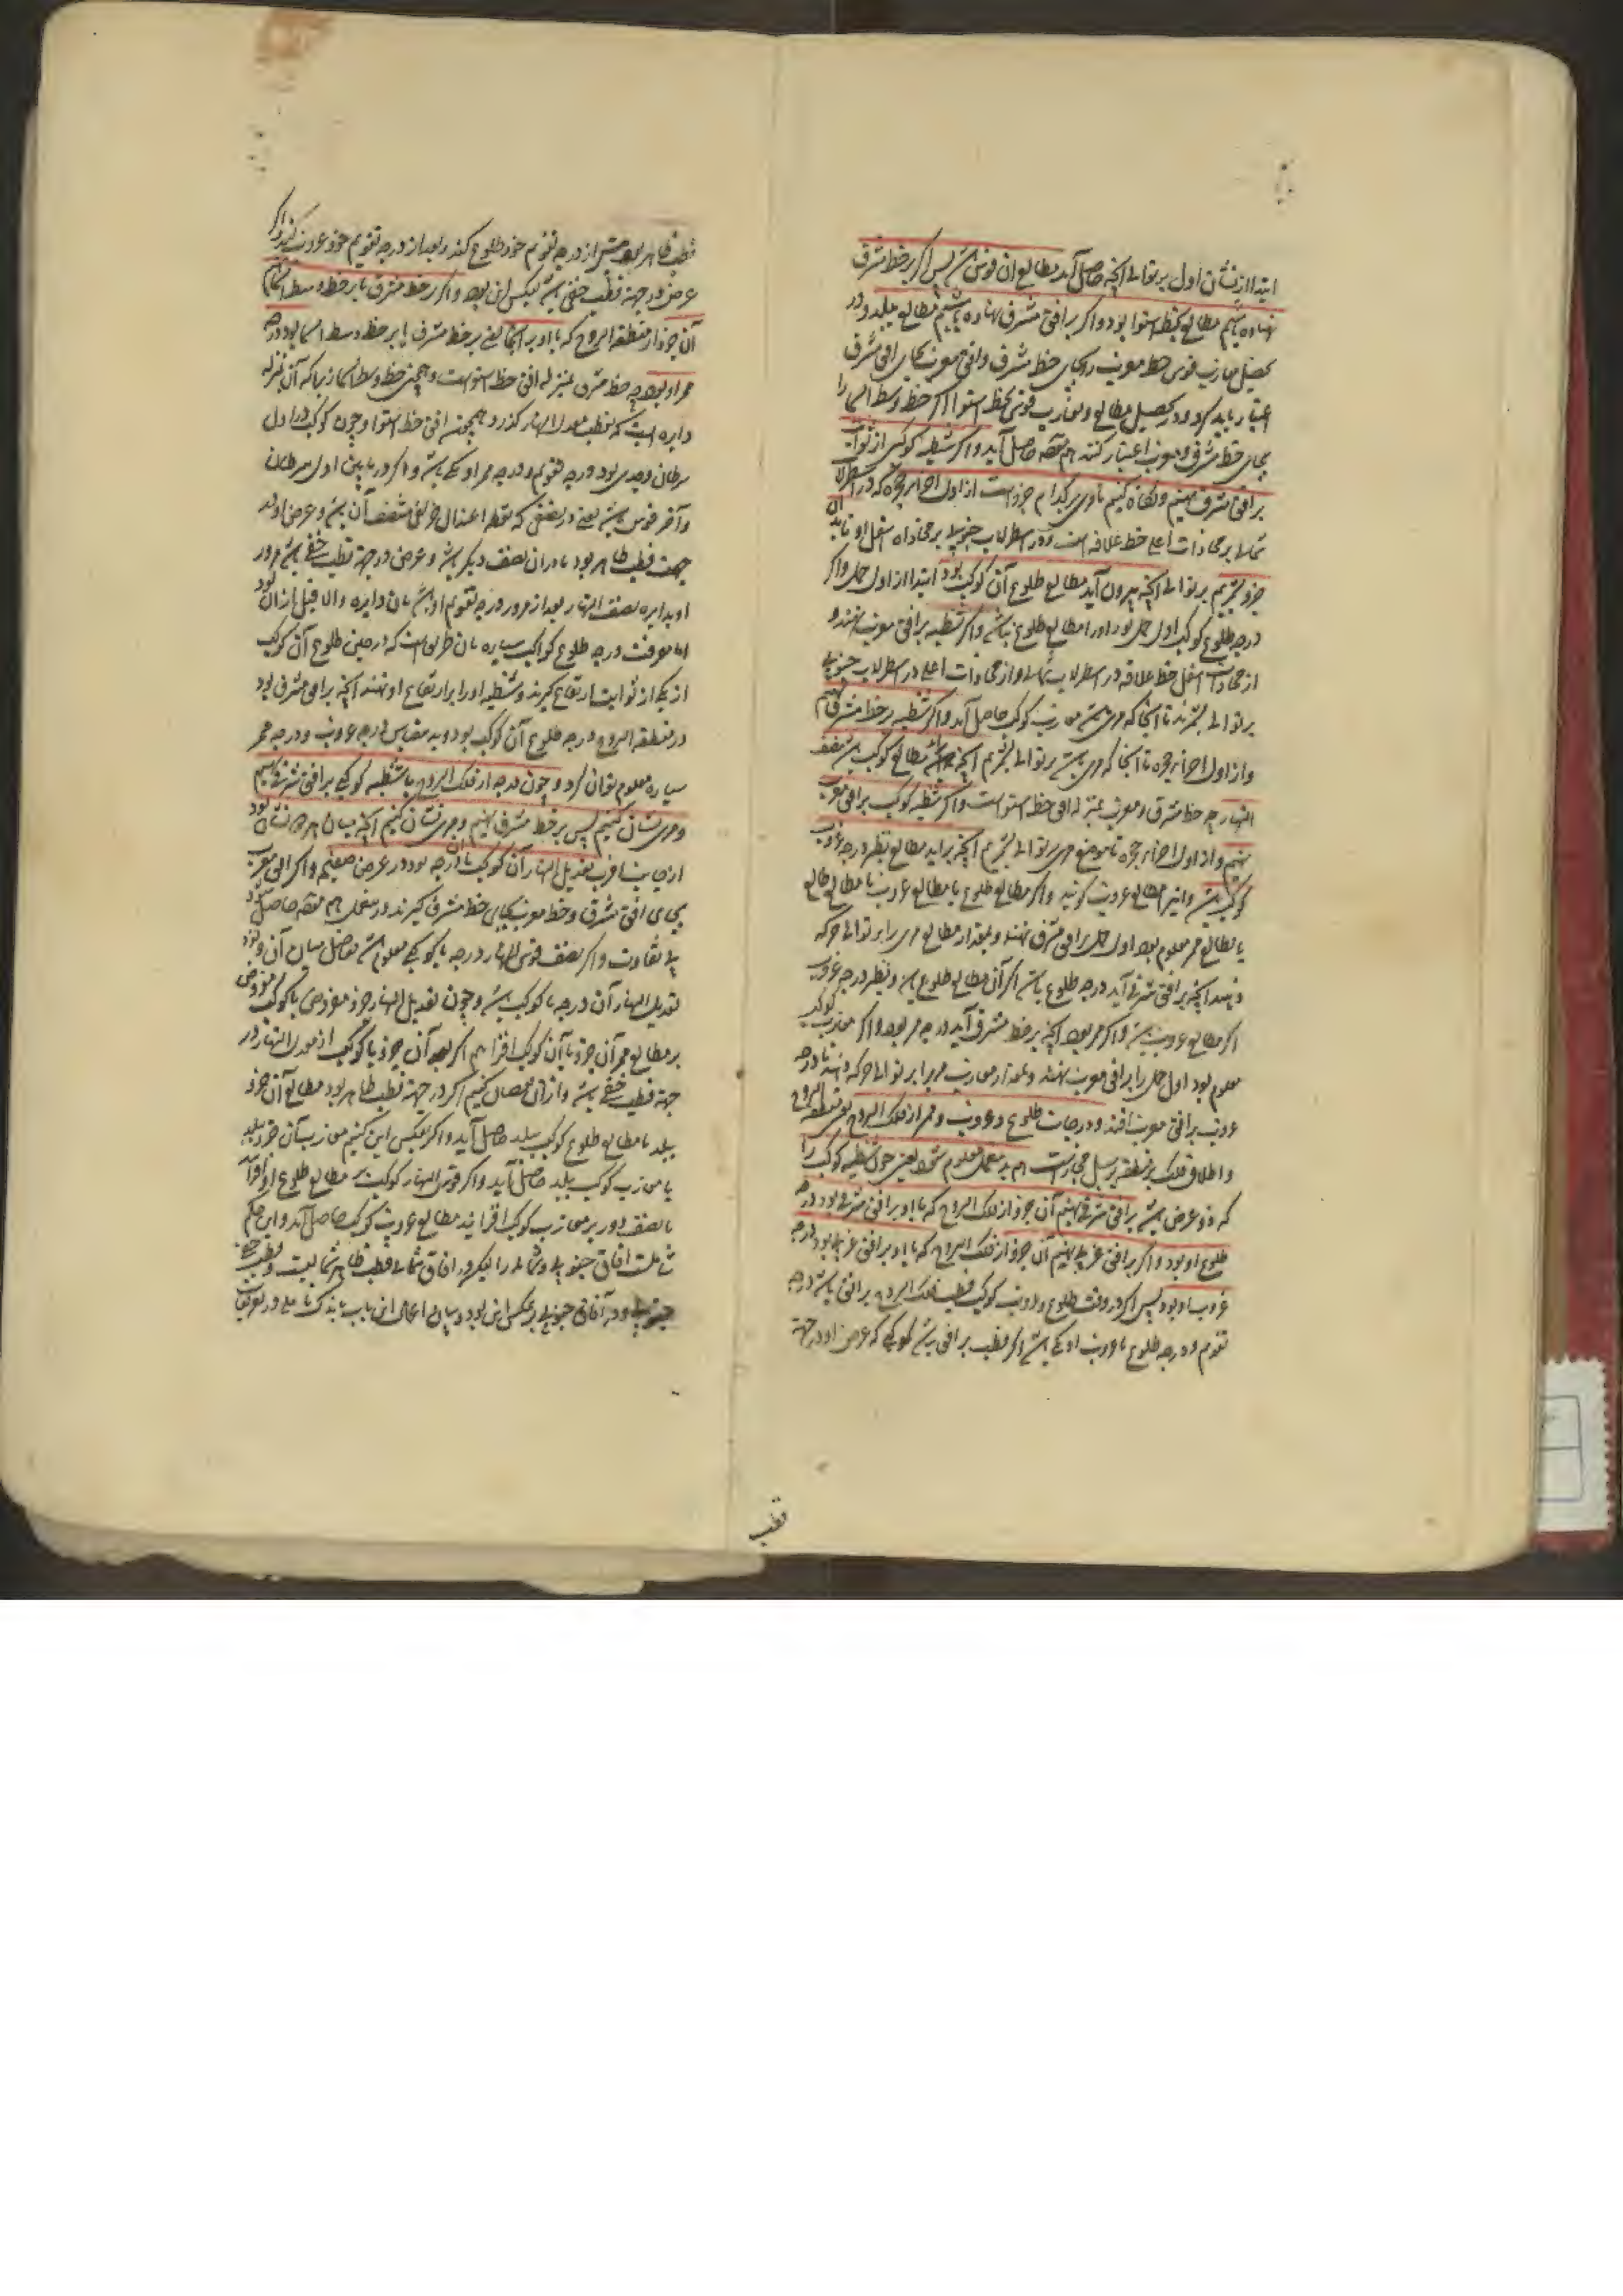 ابتدا از نشان اول بر توالی آنچه حاصل آید مطالع آن قوس باشد پس اگر بر خط مشرق
نهاده باشیم مطالع بخط استوا بود و اگر بر افق مشرق نهاده باشیم مطالع ببلد و در
تحصیل مغارب قوس خط مغرب را بجای خط مشرق و افق مغرب بجای افق مشرق
اعتبار باید کرد و در تحصیل مطالع و مغارب قوس بخط استوا اگر خط وسط السما را
بجای خط مشرق و مغرب اعتبار کنند هم مقصد حاصل آید و اگر شظیه کوکبی از ثوابت
بر افق مشرق نهیم و نگاه کنیم تا مری بر کدام جزو است از اول اجزاء حجره که در اسطرلاب
شمالی بر محاذات اعلی خط علاقه است و در اسطرلاب جنوبی بر محاذاه اسفل او تا بدان
جزو بشمریم بر توالی آنچه بیرون آید مطالع طلوع آن کوکب بود ابتدا از اول حمل و اگر
درجه طلوع کوکب اول حمل بود او را مطالع طلوع نباشد و اگر شظیه بر افق مغرب نهند و
از محاذات اسفل خط علاقه در اسطرلاب شمالی و از محاذات اعلی در اسطرلاب جنوبی
بر توالی بشمرند تا آنجا که مری باشد مغارب کوکب حاصل آید و اگر شظیه بر خط مشرق نهیم
و از اول اجزاء حجره تا آنجا که مری باشد بر توالی بشمریم آنچه باشد مطالع کوکب باشد بنصف
النهار چه خط مشرق و مغرب بمنزله افق خط استواست و اگر شظیه کوکب بر افق مغرب
نهیم و از اول اجزاء حجره تا موضع مری بر توالی بشمریم آنچه برآید مطالع نظیر درجه غروب
کوکب باشد و آنرا مطالع غروب گویند و اگر مطالع طلوع یا مطالع غروب یا مطالع طالع
یا مطالع ممر معلوم بود اول حمل بر افق مشرق نهند و بمقدار مطالع مری را بر توالی حرکه
دهند آنچه بر افق مشرق آید درجه طلوع باشد اگر آن مطالع طلوع باشد و نظیر درجه غروب
اگر مطالع غروب باشد و اگر ممر بود آنچه بر خط مشرق آید درجه ممر بود و اگر مغارب کوکب
معلوم بود اول حمل را بر افق مغرب نهند و بمقدار مغارب مری را بر توالی حرکه دهند تا درجه
غروب بر افق مغرب افتد و درجات طلوع و غروب و ممر از فلک البروج یعنی منطقه البروج
و اطلاق فلک بر منطقه بر سبیل مجاز است هم بدین عمل معلوم شود یعنی چون شظیه کوکب را
که ذو عرض باشد بر افق مشرق نهیم آن جزو از فلک البروج که با او بر افق مشرقی بود درجه
طلوع او بود و اگر بر افق غربی نهیم آن جزو از فلک البروج که با او بر افق غربی بود درجه
غروب او بود پس اگر در وقت طلوع و غروب کوکب قطب فلک البروج بر افق باشد درجه
تقویم و درجه طلوع یا غروب او یکی باشد و اگر قطب بر افق نباشد کوکبی که عرض او در جهة
قطب
قطب ظاهر بود پیش از درجه تقویم خود طلوع کند و بعد از درجه تقویم خود غروب کند و اگر
عرض در جهة قطب خفی باشد بعکس این بود و اگر بر خط مشرق یا بر خط وسط السما نهیم
آن جزو از منطقه البروج که با او بر آنجا یعنی بر خط مشرق یا بر خط وسط السما بود درجه
ممر او بود چه خط مشرق بمنزله افق خط استواست و همچنین خط وسط السما زیرا که آن بمنزله
دایره ایست که بقطب معدل النهار گذرد و همچون افق خط استوا و چون کوکب در اول
سرطان و جدی بود درجه تقویم و درجه ممر او یکی باشد و اگر در ما بین اول سرطان
و آخر قوس باشد یعنی در نصفی که نقطه اعتدال خریفی منتصف آن باشد و عرض او در
جهت قطب ظاهر بود یا در آن نصف دیگر باشد و عرض در جهة قطب خفی باشد مرور
او بدایره نصف النهار بعد از مرور درجه تقویم او باشد بان دایره و الا قبل از آن بود
اما معرفت درجه طلوع کواکب سیاره بان طریق است که در حین طلوع آن کوکب
از یکی از ثوابت ارتفاع گیرند و شظیه او را بر ارتفاع او نهند آنچه بر افق مشرق بود
از منطقه البروج درجه طلوع آن کوکب بود و بدین قیاس درجه غروب و درجه ممر
سیاره معلوم توان کرد و چون درجه از فلک البروج یا شظیه کوکبی بر افق شرقی نهیم
و مری نشان کنیم پس بر خط مشرق نهیم و مری نشان کنیم آنچه میان هر دو نشان بود
از جانب اقرب تعدیل النهار آن کوکب یا آن درجه بود در عرض صفیحه و اگر افق مغرب
بجای افق مشرق و خط مغرب بجای خط مشرق گیرند در عمل هم مقصد حاصل شود
بی تفاوت و اگر نصف قوس النهار درجه یا کوکبی معلوم باشد تفاضل میان آن و نود
تعدیل النهار آن درجه یا کوکب باشد و چون تعدیل النهار جزو مفروض یا کوکب مفروض
بر مطالع ممر آن جزو یا آن کوکب افزاییم اگر بعد آن جزو یا کوکب از معدل النهار در
جهة قطب خفی باشد و از آن نقصان کنیم اگر در جهة قطب ظاهر بود مطالع آن جزو
ببلد یا مطالع طلوع کوکب ببلد حاصل آید و اگر بعکس این کنیم مغارب آن جزو ببلد
یا مغارب کوکب ببلد حاصل آید و اگر قوس النهار کوکب بر مطالع طلوع او افزایند
یا نصف دور بر مغارب کوکب افزایند مطالع غروب کوکب حاصل آید و این حکم
شاملست آفاق جنوبی و شمالی را لیکن در آفاق شمالی قطب ظاهر شمالیست و قطب خفی
جنوبی و در آفاق جنوبی برعکس این بود و بیان اعمال این باب باندک تاملی در تعریفات